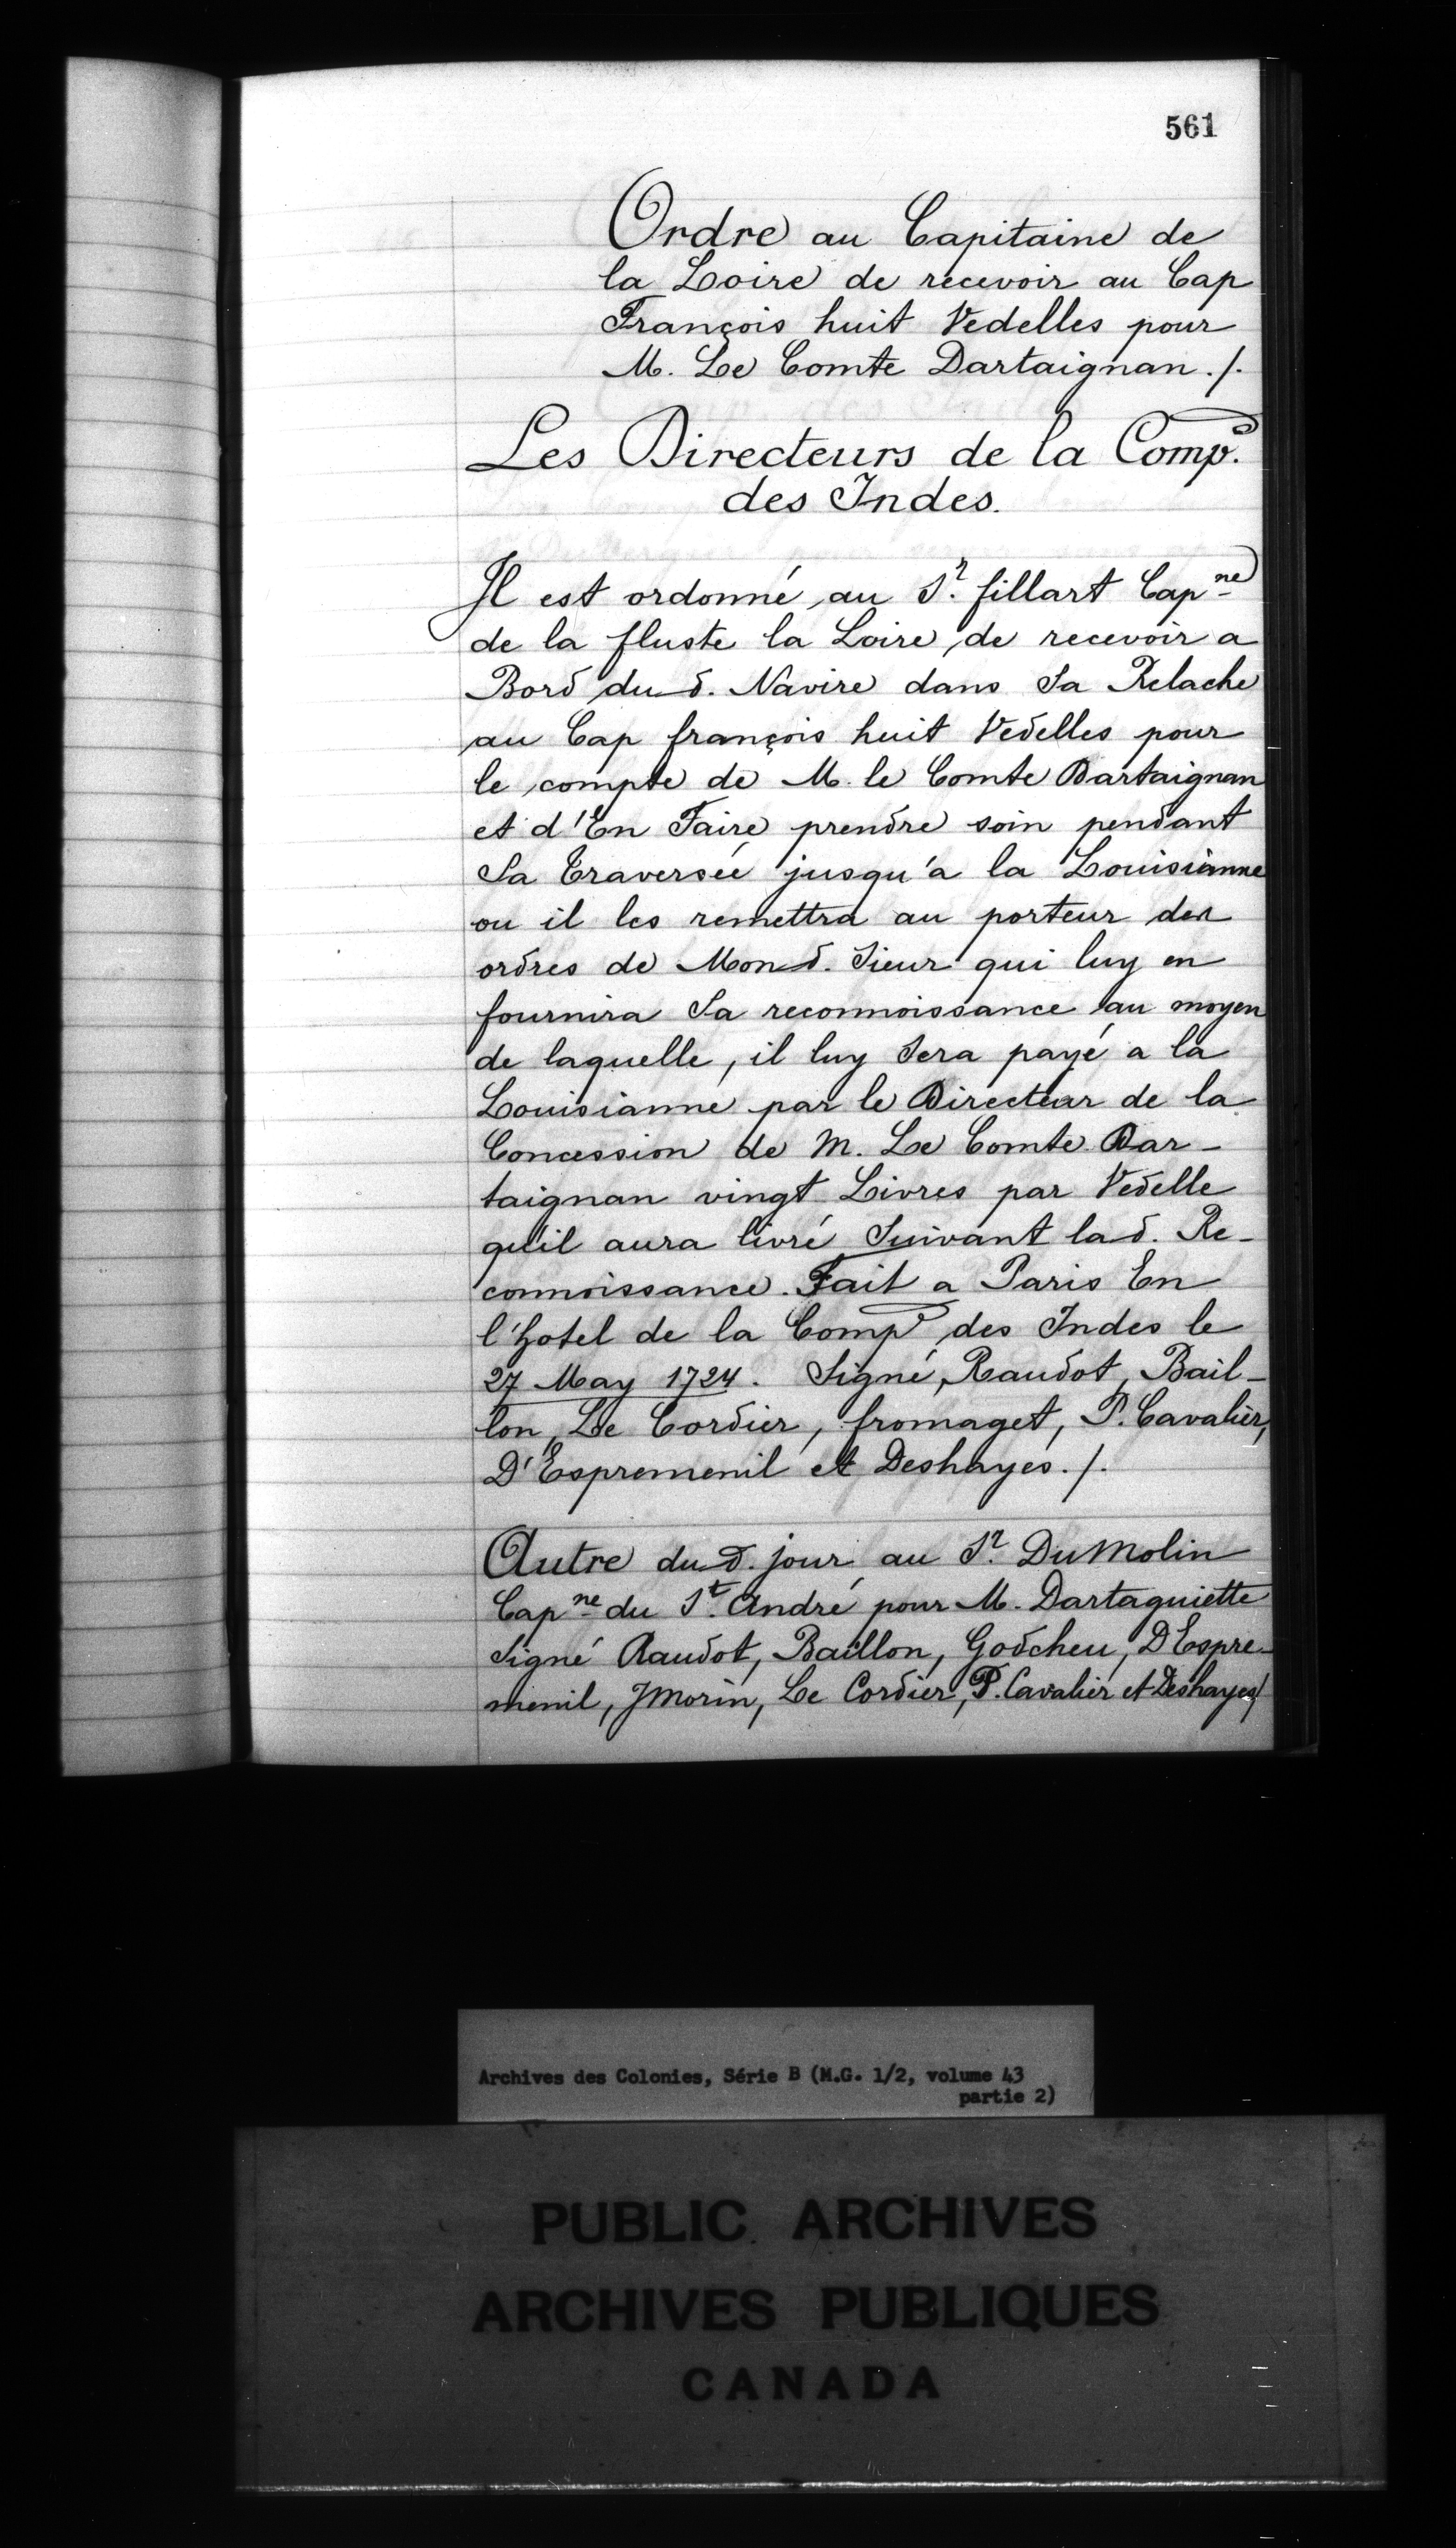 561
Ordre au Capitaine de
la Loire de recevoir au Cap
François huit Vedelles pour
M. Le Comte Dartaignan ./.
Les Directeurs de la Comp.e
des Indes.
Il est ordonné au Sr. fillart Capne
de la fluste la Loire de recevoir a
Bord du d. Navire dans Sa Relache
au Cap françois huit Vedelles pour
le compte de M. le Comte Dartaignan
et d'En Faire prendre soin pendant
Sa Traversée jusqu'a la Louisianne
ou il les remettra au porteur des
ordres de Mon d. Sieur qui luy en
fournira Sa reconnoissance au moyen
de laquelle, il luy Sera payé a la
Louisianne par le Directeur de la
Concession de M. Le Comte Dar-
taignan vingt Livres par Vedelle
qu'il aura livré Suivant la d. Re-
connoissance. Fait a Paris En
l'hotel de la Compe des Indes le
27 May 1724. Signé, Raudot, Bail-
lon, Le Cordier, fromaget, P. Cavalier,
D'Espremenil et Deshayes ./.
Autre du d. jour au Sr. DuMolin
Capne du St. André pour M. Dartaguiette
Signé Raudot, Baillon, Godcheu, D'Espre-
menil, JMorin, Le Cordier, P. Cavalier et Deshayes/
Archives des Colonies, Série B (M.G. 1/2, volume 43
partie 2)
PUBLIC ARCHIVES
ARCHIVES PUBLIQUES
CANADA